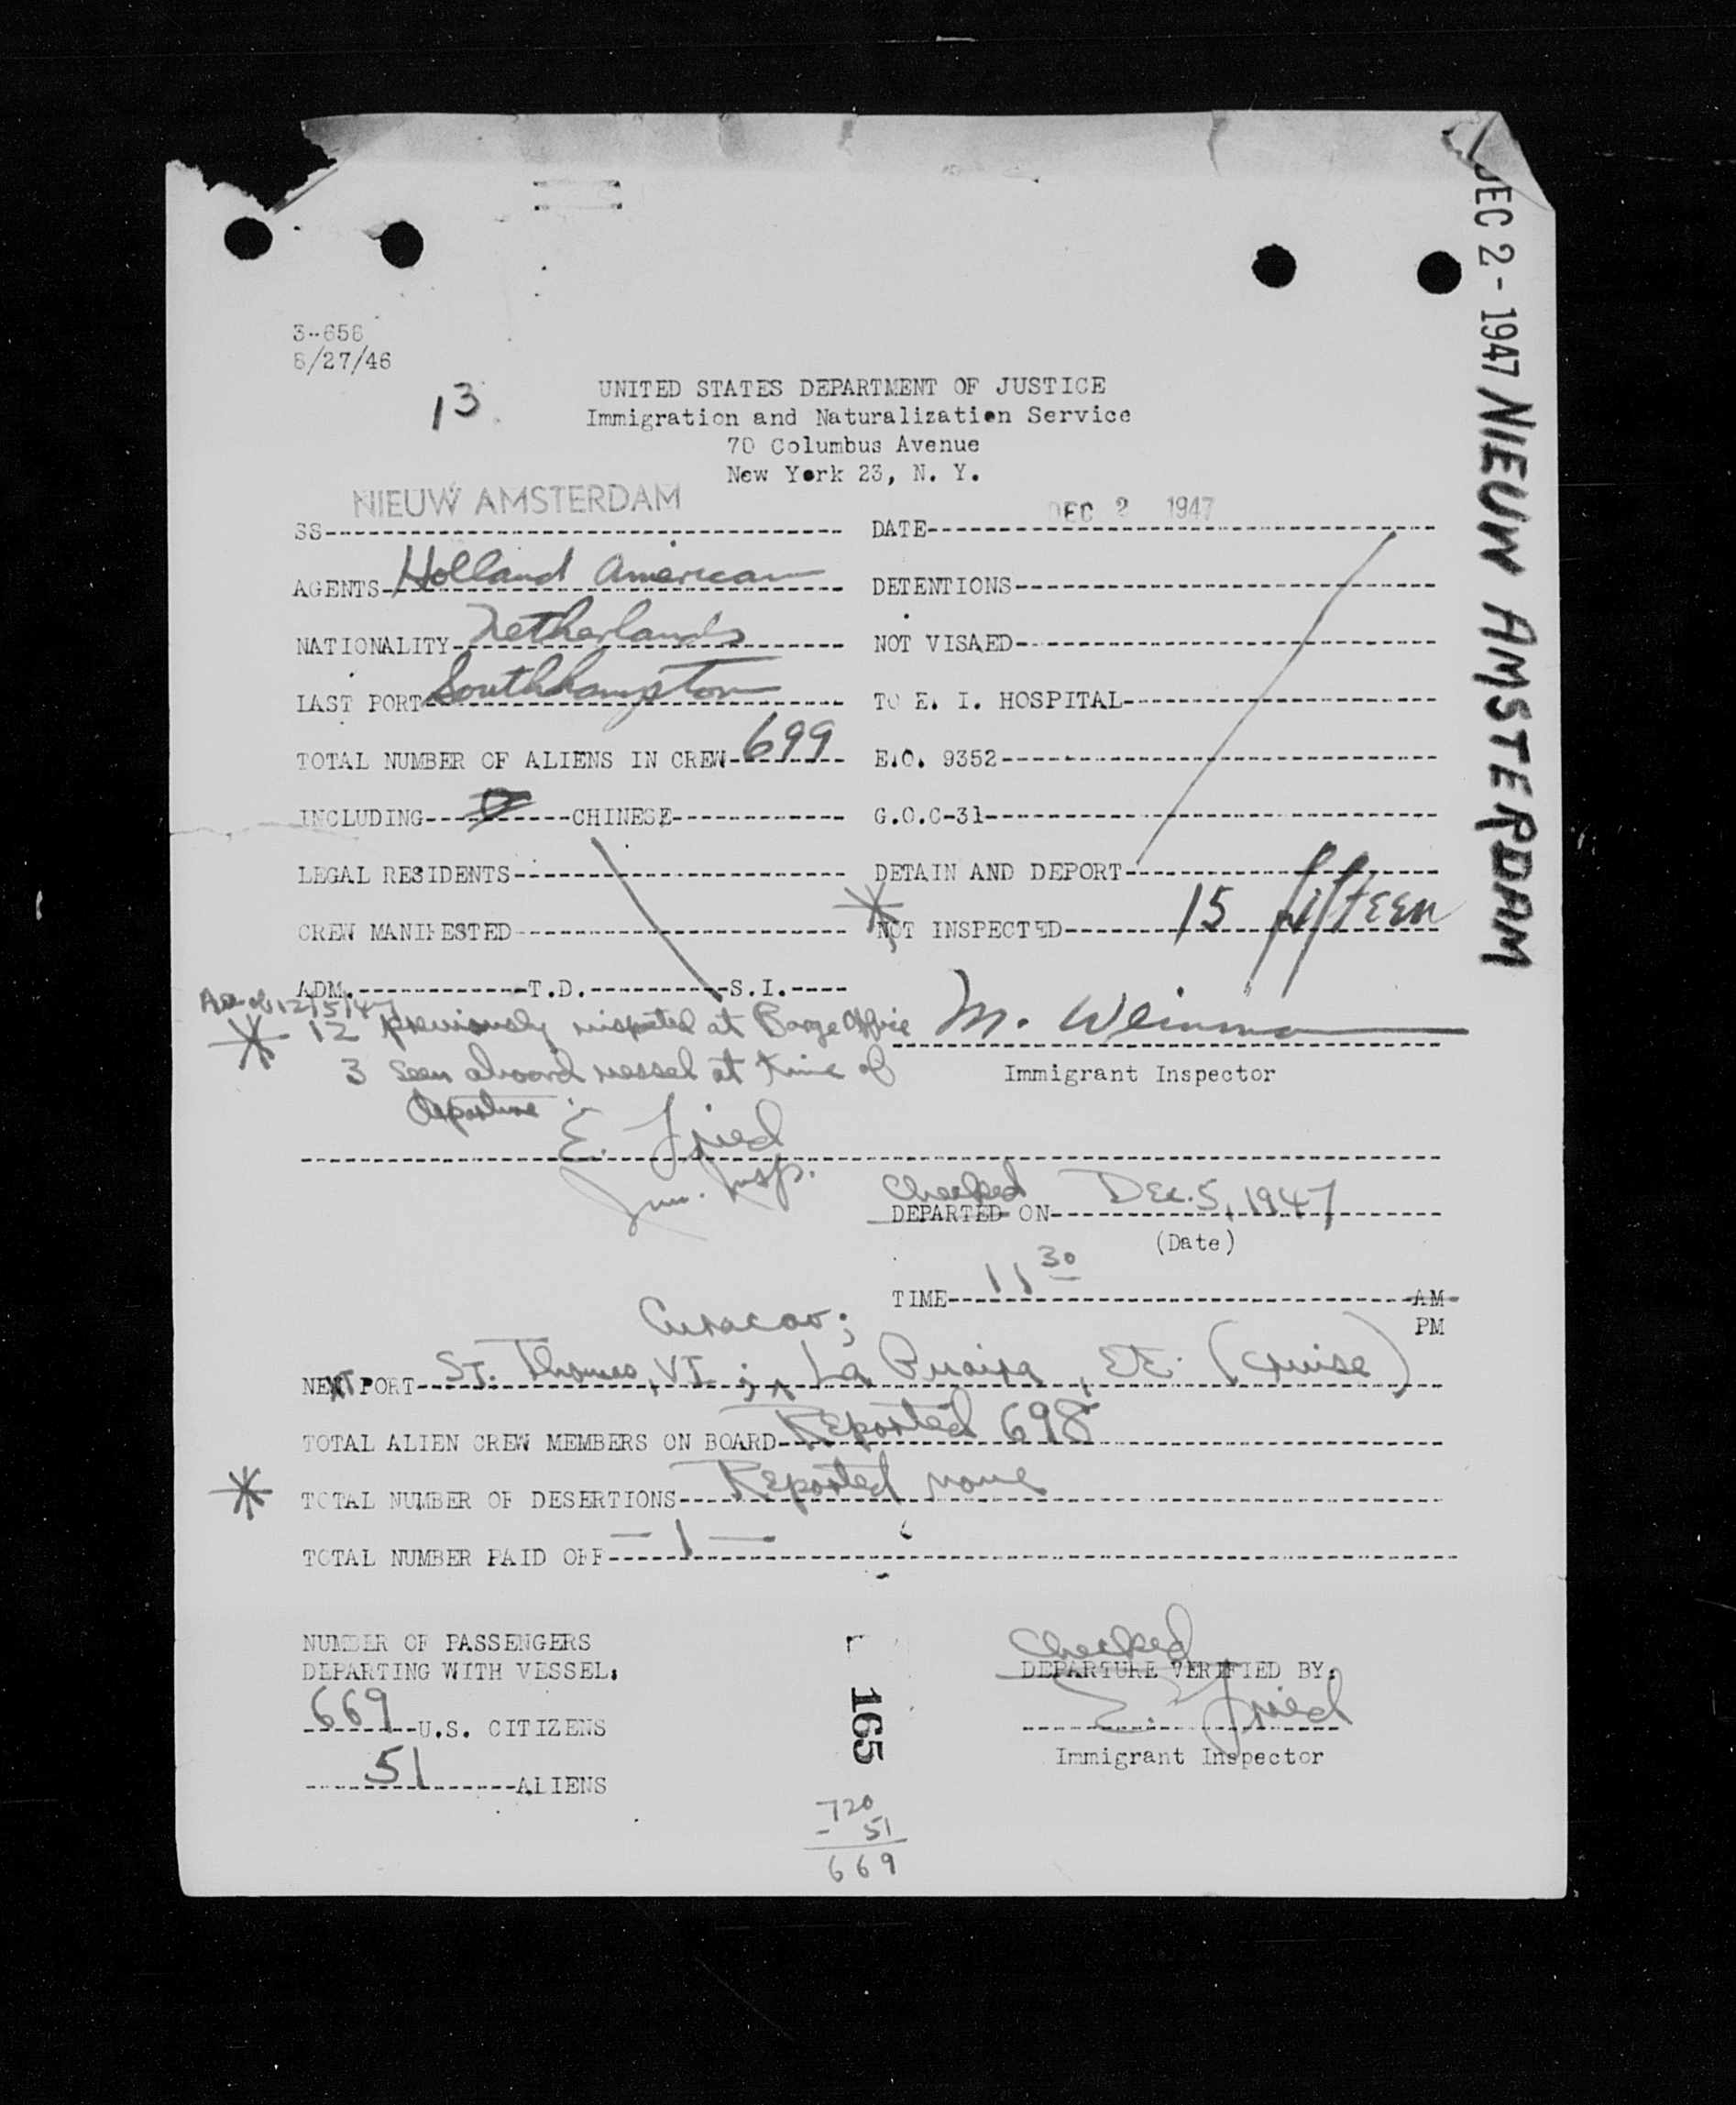 DEC 2 - 1947 NIEUW AMSTERDAM
3-658
8/27/46
13
UNITED STATES DEPARTMENT OF JUSTICE
Immigration and Naturalization Service
70 Columbus Avenue
New York 23, N. Y.
SS NIEUW AMSTERDAM DATE DEC 2 1947
AGENTS Holland American DETENTIONS
NATIONALITY Netherlands NOT VISAED
LAST PORT Southhampton TO E. I. HOSPITAL
TOTAL NUMBER OF ALIENS IN CREW 699 E.O. 9352
INCLUDING CHINESE G.O.C-31
LEGAL RESIDENTS DETAIN AND DEPORT
CREW MANIFESTED * NOT INSPECTED 15 fifteen
ADM. T.D. S.I.
As of 12/5/47
* 12 previously inspected at Barge Office M. Weinman
3 seen aboard vessel at time of Immigrant Inspector
departure
E. Fried
Imm. Insp.
Checked
DEPARTED ON Dec. 5, 1947
(Date)
TIME 11 30 AM
PM
Curacao;
NEXT PORT St. Thomas, VI ; La Guaira, Etc. (cruise)
TOTAL ALIEN CREW MEMBERS ON BOARD Reported 698
* TOTAL NUMBER OF DESERTIONS Reported none
TOTAL NUMBER PAID OFF - 1 -
NUMBER OF PASSENGERS
DEPARTING WITH VESSEL.
669 U.S. CITIZENS
51 ALIENS
165
720
- 51
669
Checked
DEPARTURE VERIFIED BY.
E. Fried
Immigrant Inspector